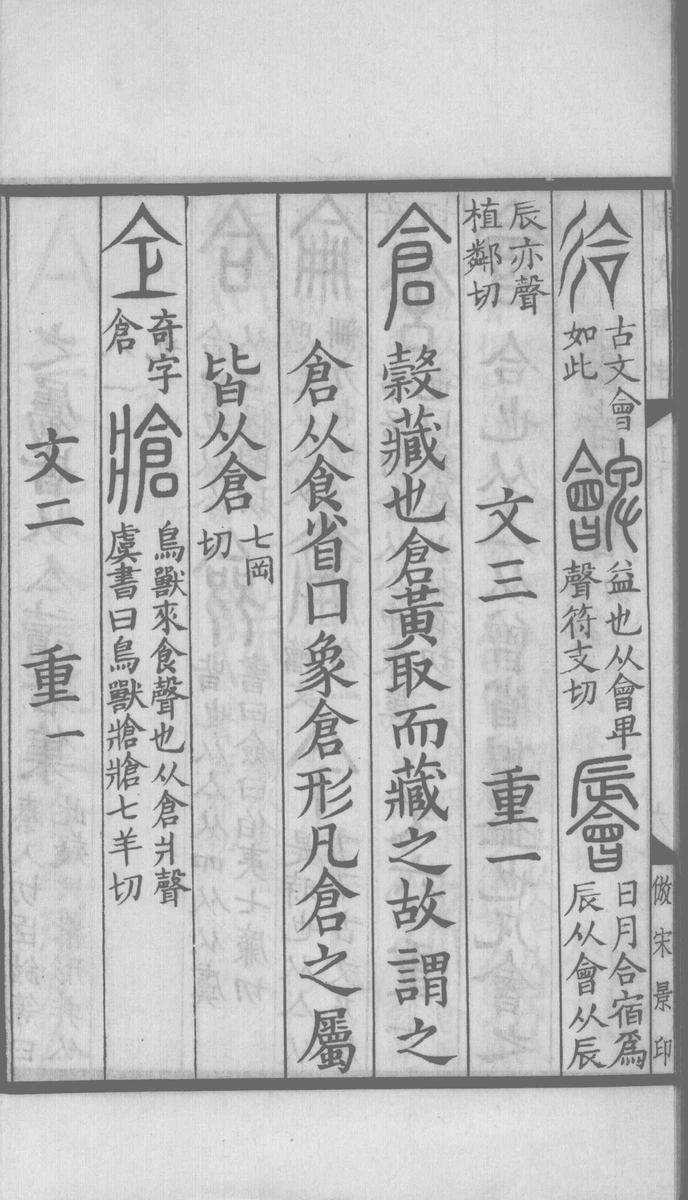 㣛 古文會如此 䪻 益也从會卑聲符支切 䢈 日月合宿爲辰从會从辰
辰亦聲植鄰切 文三 重一
倉 穀藏也倉黃取而藏之故謂之
倉从食省囗象倉形凡倉之屬
皆从倉 七岡切
仺 奇字倉 牄 鳥獸來食聲也从倉爿聲虞書曰鳥獸牄牄七羊切
文二 重一
倣宋景印